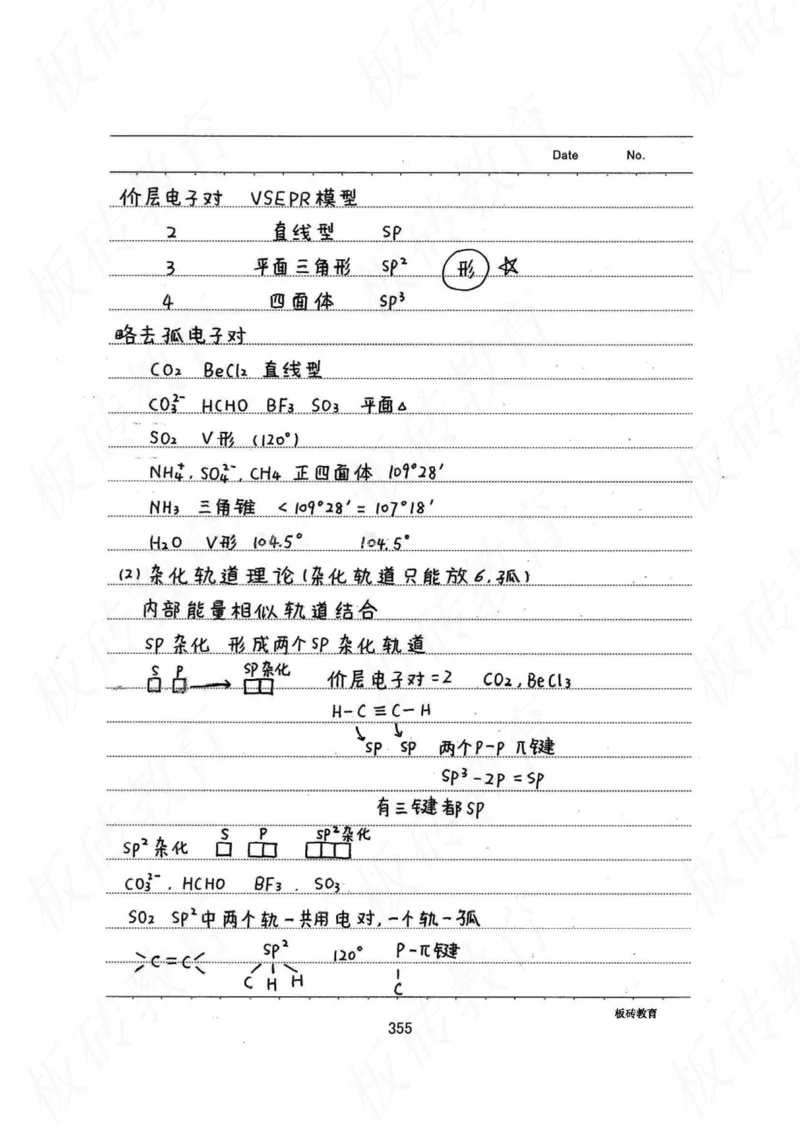 Date No.
价层电子对 VSEPR模型
2 直线型 sp
3 平面三角形 sp² 形 ☆
4 四面体 sp³
略去孤电子对
CO₂ BeCl₂ 直线型
CO₃²⁻ HCHO BF₃ SO₃ 平面△
SO₂ V形 (120°)
NH₄⁺, SO₄²⁻, CH₄ 正四面体 109°28′
NH₃ 三角锥 < 109°28′ = 107°18′
H₂O V形 104.5° 104.5°
(2) 杂化轨道理论 (杂化轨道只能放6,孤)
内部能量相似轨道结合
SP 杂化 形成两个SP 杂化轨道
S P SP杂化
□ □ → □□ 价层电子对=2 CO₂, BeCl₃
H-C≡C-H
SP SP 两个P-P π键
SP³-2P=SP
有三键都SP
S P SP²杂化
SP²杂化 □ □□ □□□
CO₃²⁻, HCHO BF₃, SO₃
SO₂ SP²中两个轨-共用电对,一个轨-孤
C=C SP² 120° P-π键
C H H C
板砖教育
355